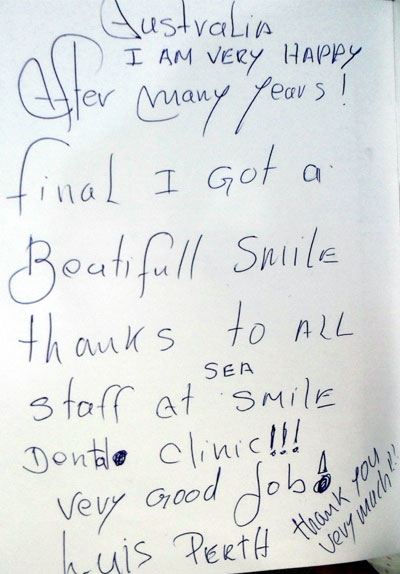 Australia
I AM VERY HAPPY
After many years!
final I Got a
Beatifull SMILE
thanks to ALL
SEA
staff at SMILE
Dental Clinic!!!
very Good Job!
Luis PERTH
thank you
very much!!